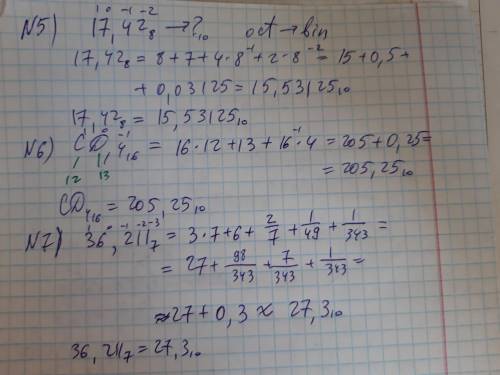 1 0 -1 -2
N5) 17,42₈ → ?₁₀ oct → bin
17,42₈ = 8 + 7 + 4·8⁻¹ + 2·8⁻² = 15 + 0,5 +
+ 0,03125 = 15,53125₁₀
17,42₈ = 15,53125₁₀
1 0 -1
N6) CD,4₁₆ = 16·12 + 13 + 16⁻¹·4 = 205 + 0,25 =
12 13 = 205,25₁₀
CD,4₁₆ = 205,25₁₀
1 0 -1 -2 -3
N7) 36,211₇ = 3·7 + 6 + 2/7 + 1/49 + 1/343 =
= 27 + 98/343 + 7/343 + 1/343 =
≈ 27 + 0,3 ≈ 27,3₁₀
36,211₇ = 27,3₁₀